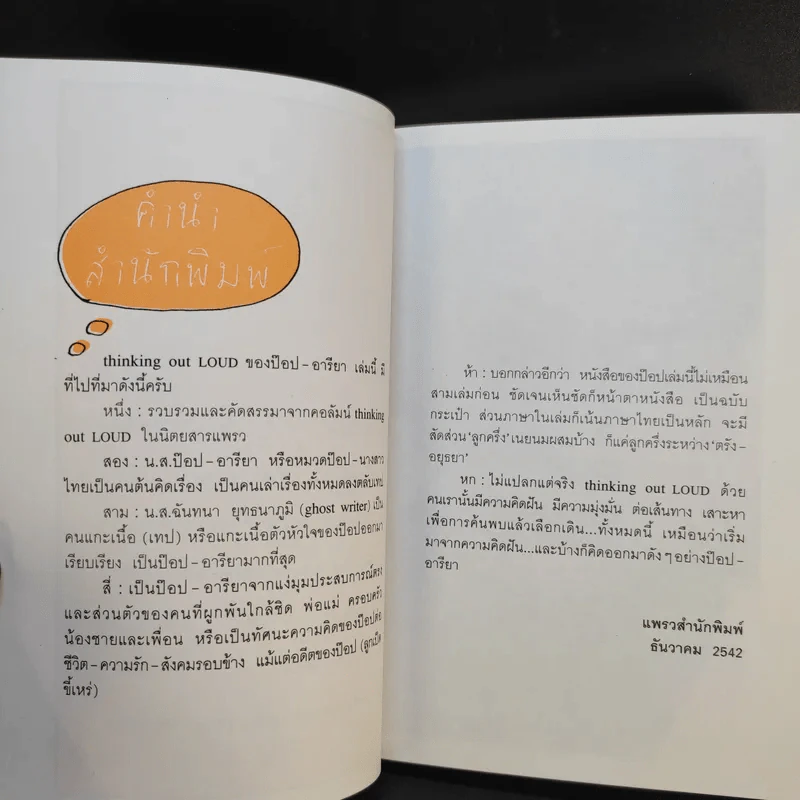 คำนำ
สำนักพิมพ์
thinking out LOUD ของป๊อป-อารียา เล่มนี้ มี
ที่ไปที่มาดังนี้ครับ
หนึ่ง : รวบรวมและคัดสรรมาจากคอลัมน์ thinking
out LOUD ในนิตยสารแพรว
สอง : น.ส.ป๊อป-อารียา หรือหมวดป๊อป-นางสาว
ไทยเป็นคนต้นคิดเรื่อง เป็นคนเล่าเรื่องทั้งหมดลงตลับเทป
สาม : น.ส.ฉันทนา ยุทธนาภูมิ (ghost writer) เป็น
คนแกะเนื้อ (เทป) หรือแกะเนื้อตัวหัวใจของป๊อปออกมา
เรียบเรียง เป็นป๊อป-อารียามากที่สุด
สี่ : เป็นป๊อป-อารียาจากแง่มุมประสบการณ์ตรง
และส่วนตัวของคนที่ผูกพันใกล้ชิด พ่อแม่ ครอบครัว
น้องชายและเพื่อน หรือเป็นทัศนะความคิดของป๊อปต่อ
ชีวิต-ความรัก-สังคมรอบข้าง แม้แต่อดีตของป๊อป (ลูกเป็ด
ขี้เหร่)
ห้า : บอกกล่าวอีกว่า หนังสือของป๊อปเล่มนี้ไม่เหมือน
สามเล่มก่อน ชัดเจนเห็นชัดก็หน้าตาหนังสือ เป็นฉบับ
กระเป๋า ส่วนภาษาในเล่มก็เน้นภาษาไทยเป็นหลัก จะมี
สัดส่วน‘ลูกครึ่ง’เนยนมผสมบ้าง ก็แค่ลูกครึ่งระหว่าง‘ตรัง-
อยุธยา’
หก : ไม่แปลกแต่จริง thinking out LOUD ด้วย
คนเรานั้นมีความคิดฝัน มีความมุ่งมั่น ต่อเส้นทาง เสาะหา
เพื่อการค้นพบแล้วเลือกเดิน...ทั้งหมดนี้ เหมือนว่าเริ่ม
มาจากความคิดฝัน...และบ้างก็คิดออกมาดังๆอย่างป๊อป-
อารียา
แพรวสำนักพิมพ์
ธันวาคม 2542